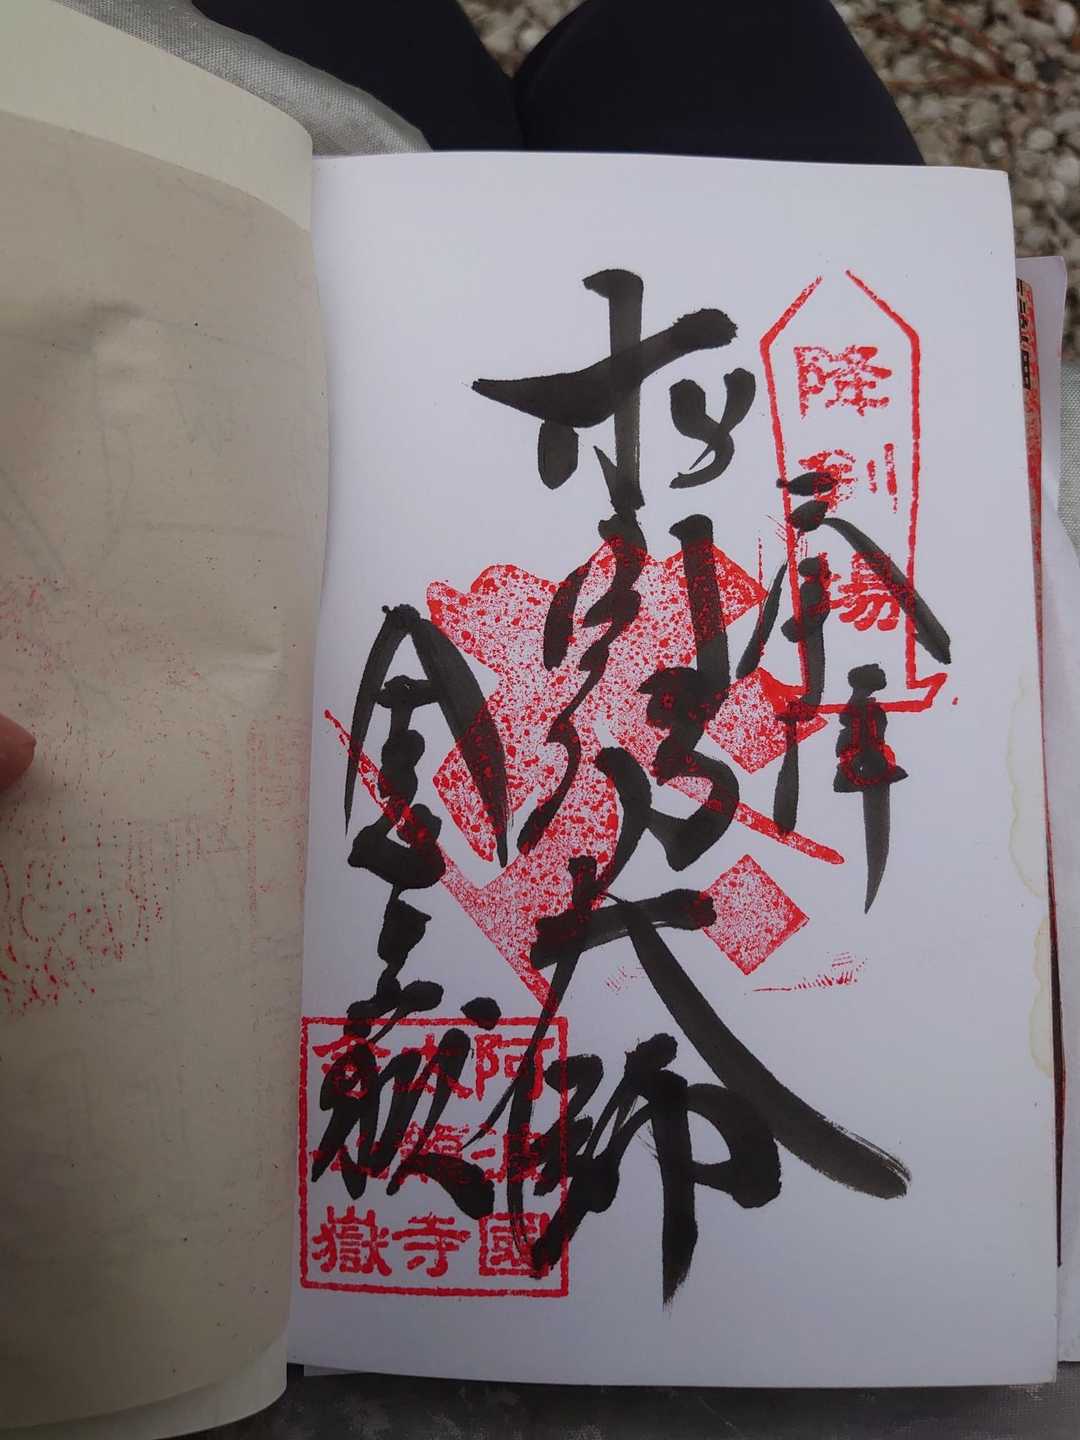 奉拝
求聞持大師
舎心嶽
降剣場
阿波國
太龍寺
舎心嶽